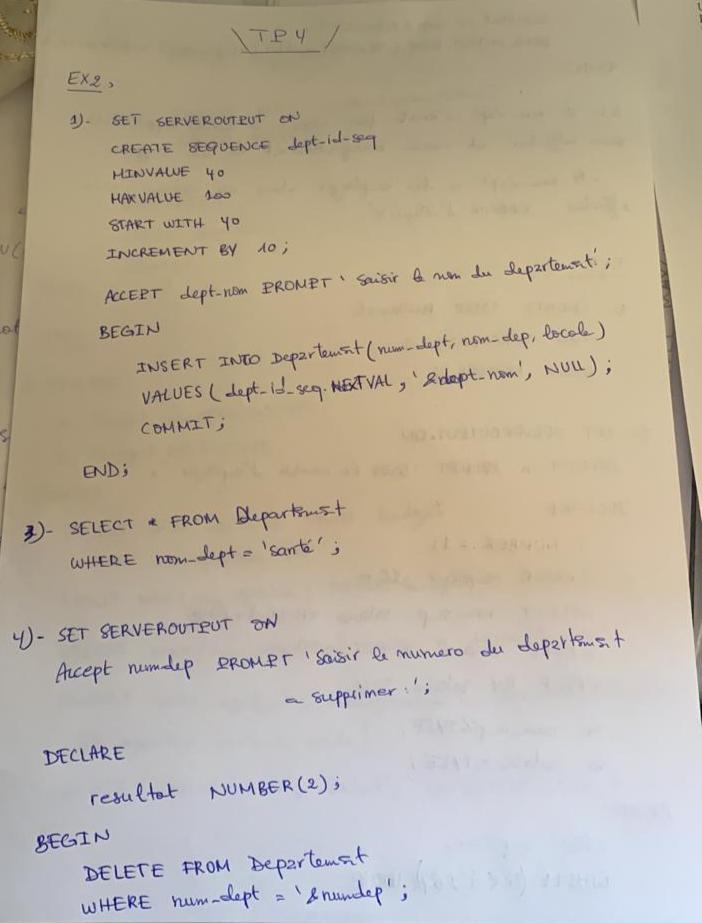 TP4
EX2,
1)- SET SERVEROUTPUT ON
CREATE SEQUENCE dept-id-seq
MINVALUE 40
MAXVALUE 100
START WITH 40
INCREMENT BY 10;
ACCEPT dept-nom PROMPT 'saisir le nom du departement';
BEGIN
INSERT INTO Departement(num-dept, nom-dep, locale)
VALUES (dept-id-seq.NEXTVAL, '&dept-nom', NULL);
COMMIT;
END;
3)- SELECT * FROM Departement
WHERE nom-dept = 'santé';
4)- SET SERVEROUTPUT ON
Accept numdep PROMPT 'saisir le numero du departement
a supprimer:';
DECLARE
resultat NUMBER(2);
BEGIN
DELETE FROM Departement
WHERE num-dept = '&numdep';